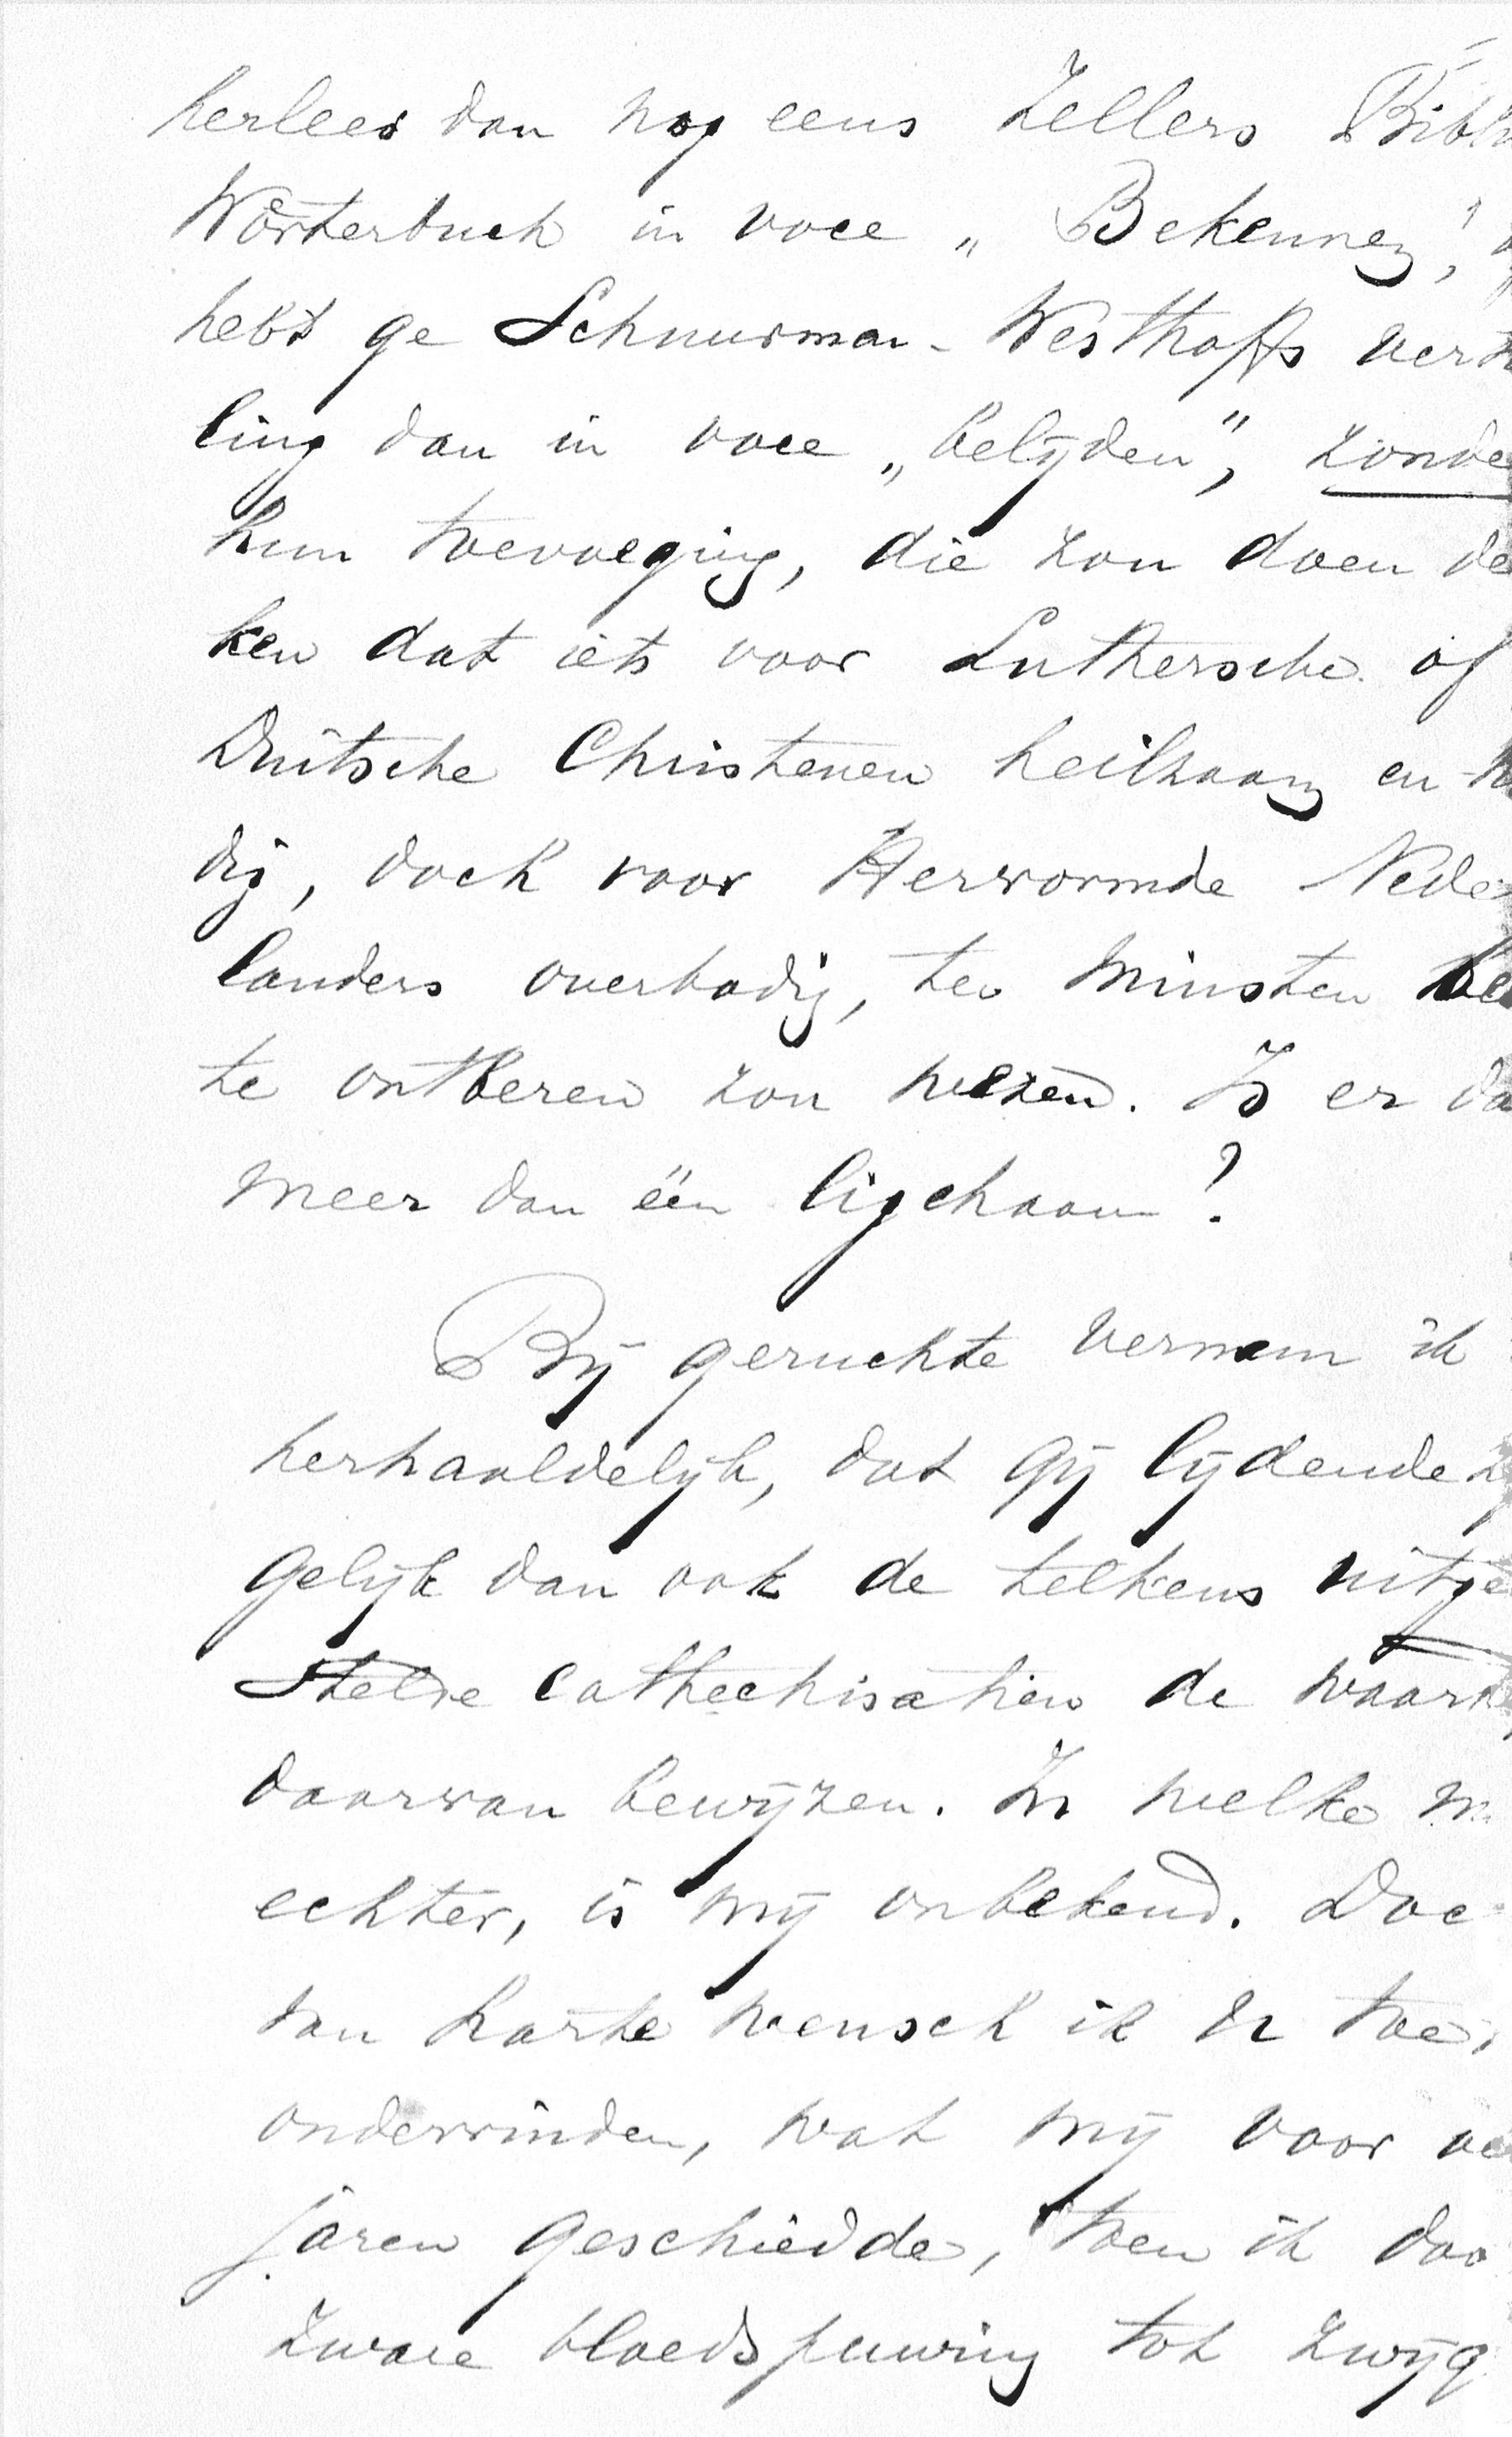 herlees dan nog eens Zellers Bibl
Wörterbuch in voce „Bekennen",
hebt ge Schuurman-Westhoffs vert
ling dan in voce „belijden", zonde
hun toevoeging, die zou doen de
ken dat iets voor Luthersche of
Duitsche Christenen heilzaam en n
dig, doch voor Hervormde Neder
landers overbodig, ten minsten be
te ontberen zou wezen. Is er da
meer dan één ligchaam?
Bij geruchte vernam ik
herhaaldelijk, dat gij lijdende z
gelijk dan ook de telkens uitge
stelde cathechisatien de waarh
daarvan bewijzen. In welke m
echter, is mij onbekend. Doc
van harte wensch ik U toe,
ondervinden, wat mij voor ve
jaren geschiedde, toen ik doo
zware bloedspuwing tot zwijg